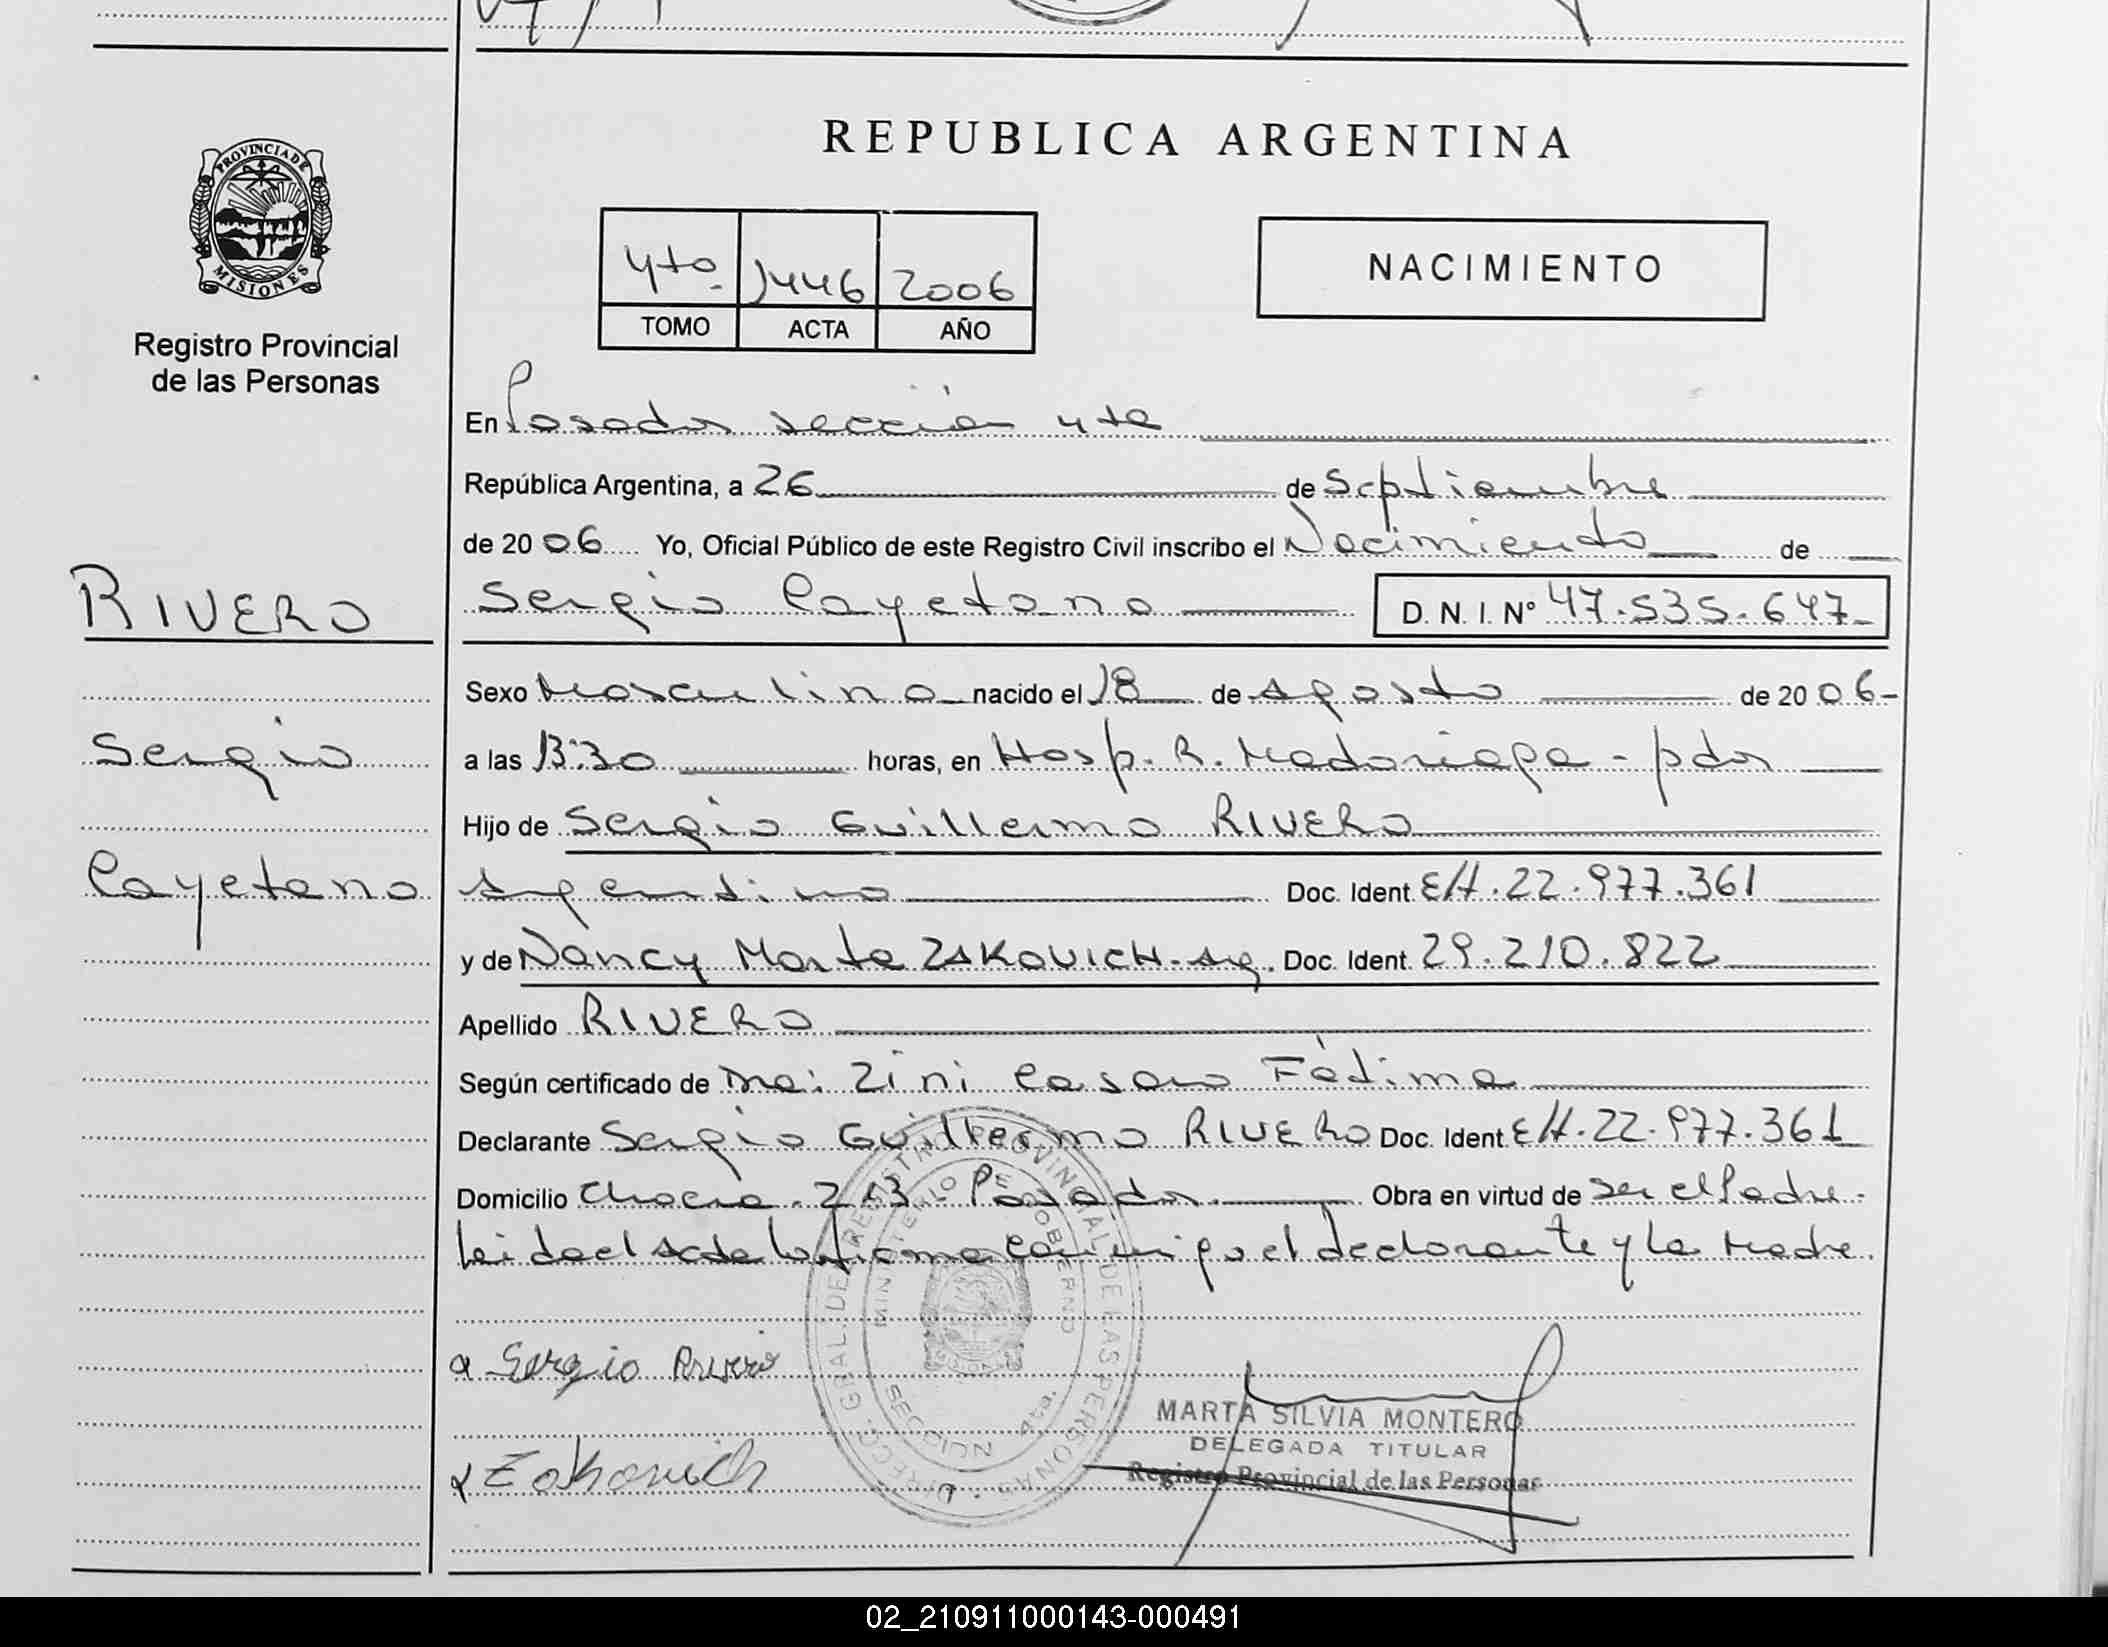 REPUBLICA ARGENTINA
PROVINCIA DE
MISIONES
Registro Provincial
de las Personas
4to. 1446 2006
TOMO ACTA AÑO
NACIMIENTO
En Posadas sección 4ta
República Argentina, a 26 de Septiembre
de 2006 Yo, Oficial Público de este Registro Civil inscribo el Nacimiento de
RIVERO
Sergio Cayetano D. N. I. Nº 47.535.647
Sexo Masculino nacido el 18 de Agosto de 2006
Sergio
a las 13:30 horas, en Hosp. R. Madariaga - pdas
Hijo de Sergio Guillermo RIVERO
Cayetano
Argentino Doc. Ident. 22.977.361
y de Nancy Marta ZAKOVICH - Arg. Doc. Ident. 29.210.822
Apellido RIVERO
Según certificado de Zini Fátima
Declarante Sergio Guillermo RIVERO Doc. Ident. 22.977.361
Domicilio Chacra 213 - Posadas Obra en virtud de ser el Padre.
Leida el Acta la firma conmigo el declarante y la Madre.
Sergio Rivero
Zakovich
DIRECC. GRAL. DEL REGISTRO PROVINCIAL DE LAS PERSONAS
MINISTERIO DE GOBIERNO
SECCION 4ta.
MARTA SILVIA MONTERO
DELEGADA TITULAR
Registro Provincial de las Personas
02_210911000143-000491